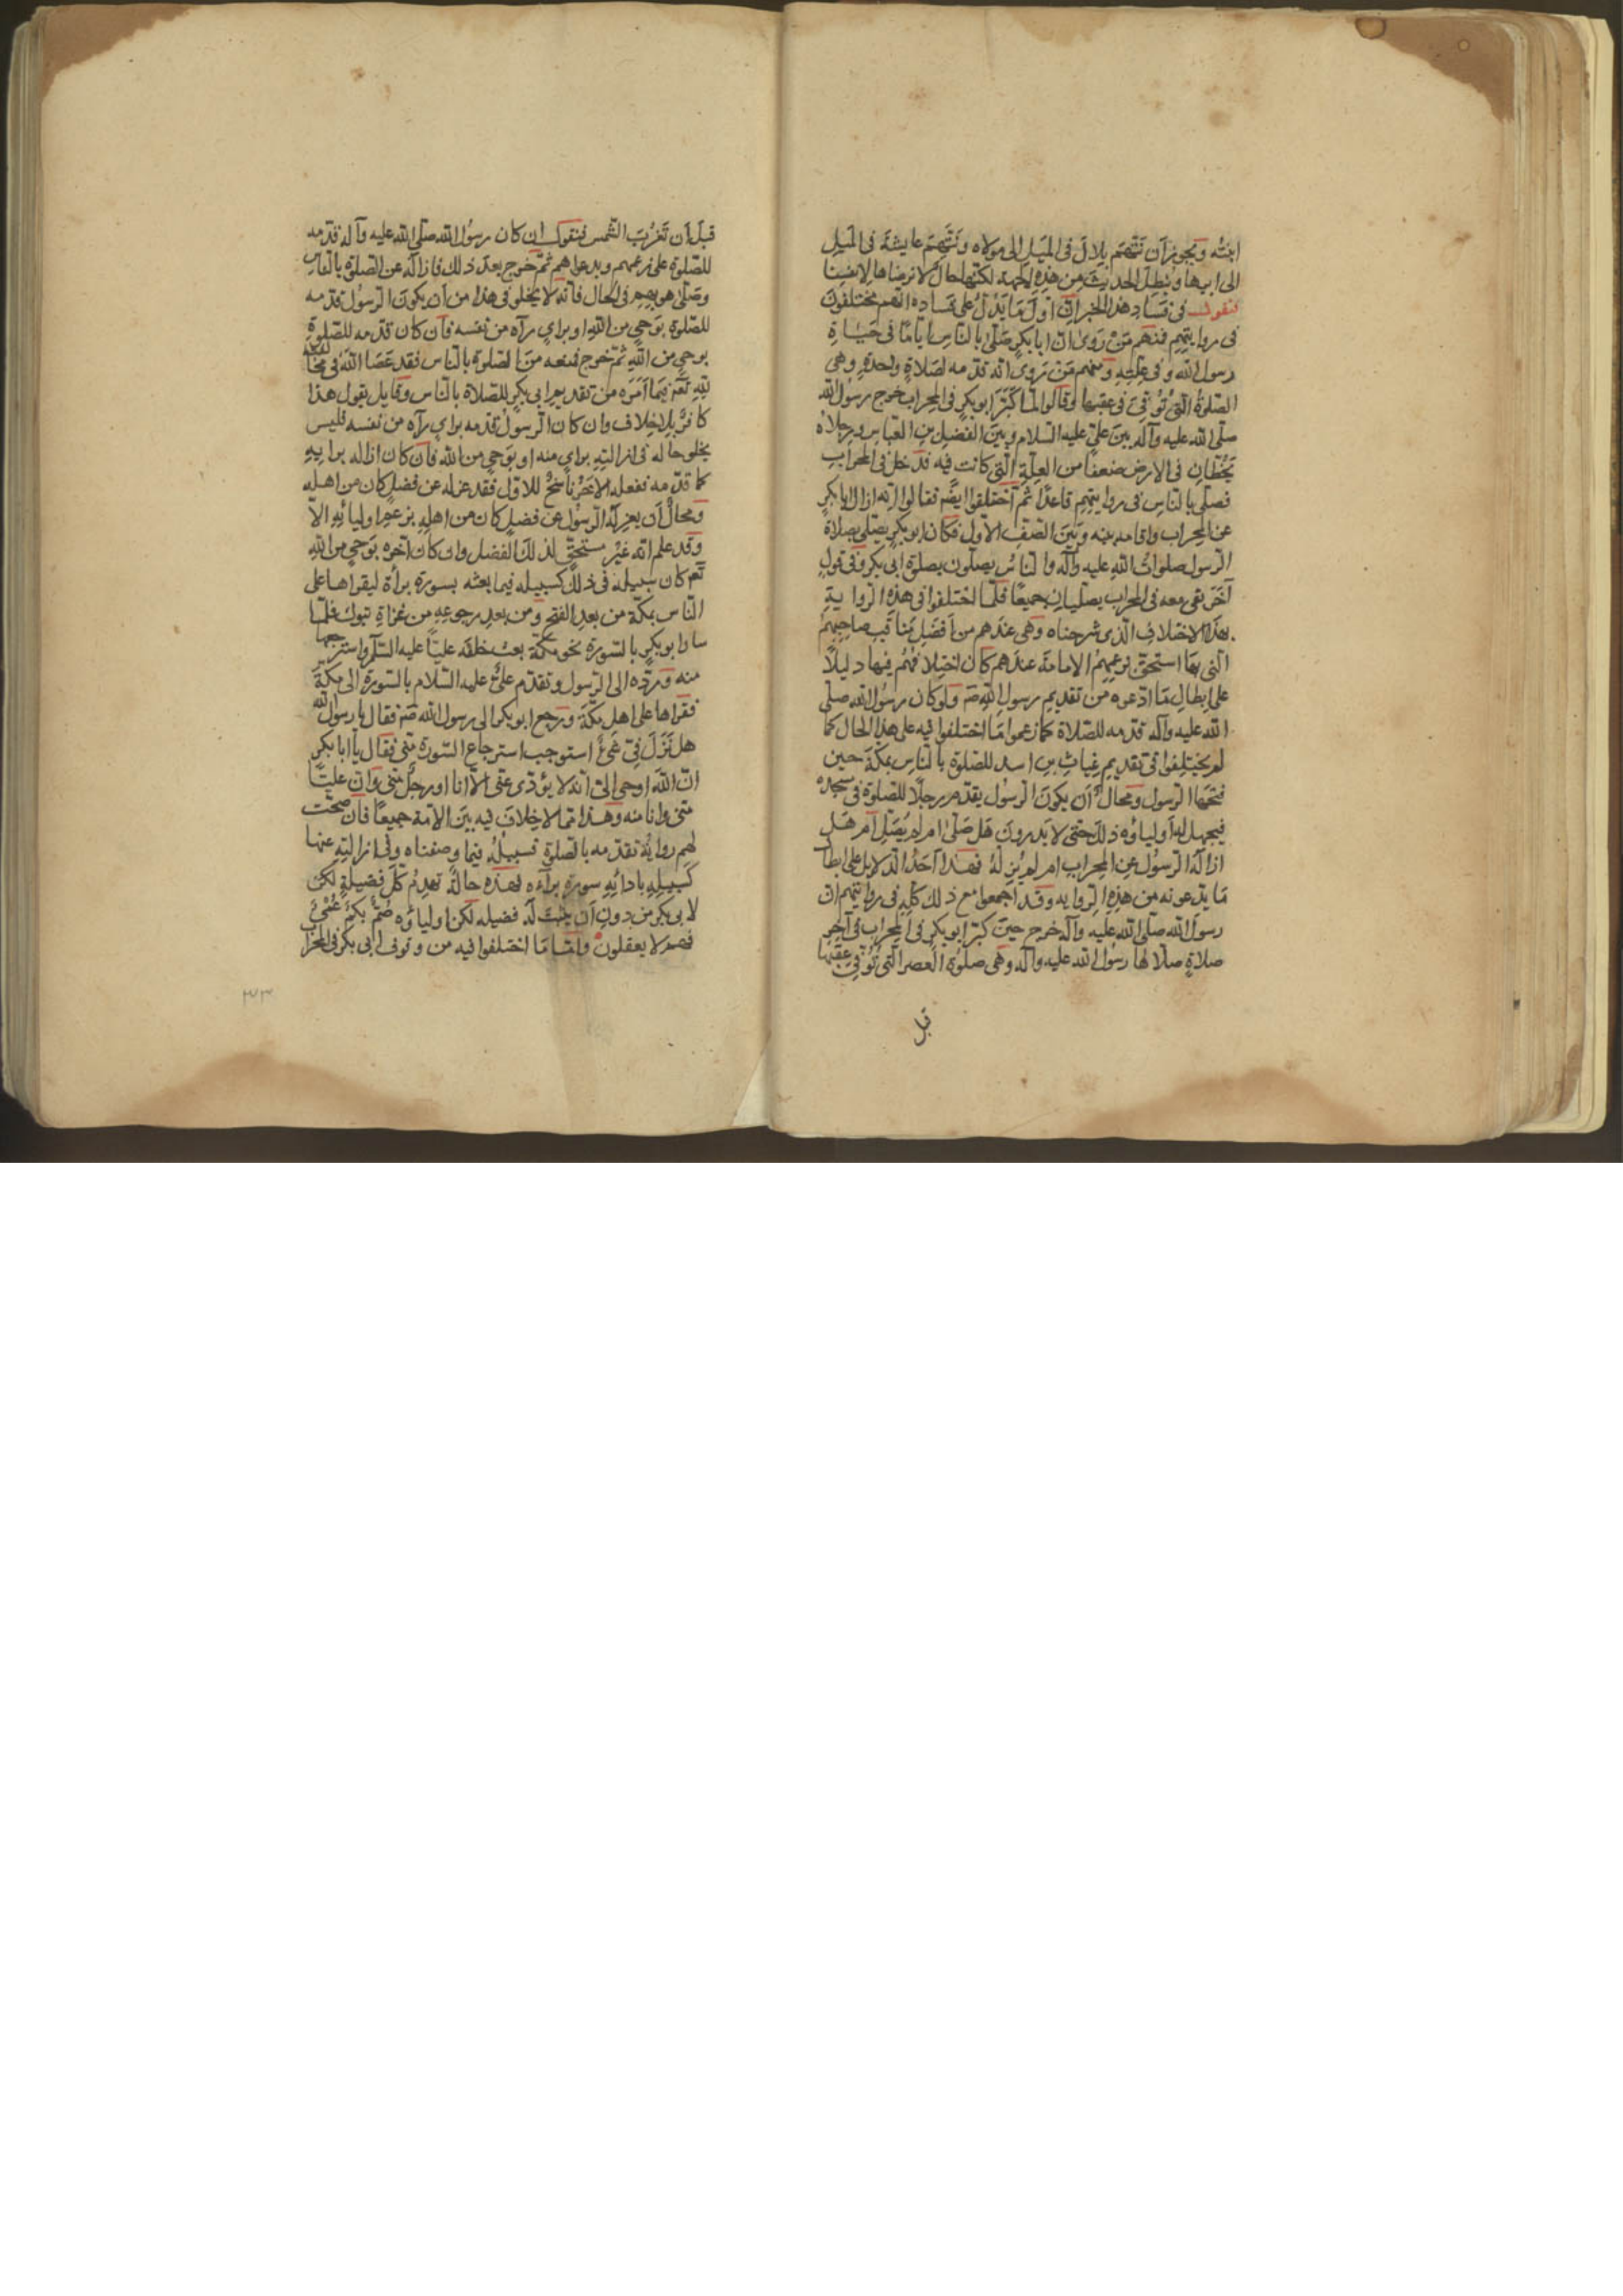 ابنته ويجوز أن نتهم بلال في الميل إلى مولاه ونتهم عايشة في الميل
إلى ابيها ونبطل الحديث من هذه الجهة لكنها حال لا نرضاها لانفسنا
فنقول في فساد هذا الخبر ان اول ما يدل على فساده انهم مختلفون
في روايتهم فمنهم من روى ان ابا بكر صلى بالناس اياما في حياة
رسول الله وفي علته ومنهم من يروى انه قدمه لصلاة واحدة وهى
الصلوة التي توفى في عقبها وقالوا لما كبر ابو بكر في المحراب خرج رسول الله
صلى الله عليه وآله بين علي عليه السلام وبين الفضل بن العباس ورجلاه
يخطان في الارض ضعفا من العلة التي كانت فيه فدخل في المحراب
فصلى بالناس في روايتهم قاعدا ثم اختلفوا ايضا فقالوا انه ازال ابا بكر
عن المحراب واقامه بينه وبين الصف الاول فكان ابو بكر يصلى بصلاة
الرسول صلوات الله عليه وآله والناس يصلون بصلوة ابى بكر وفي قول
آخر بقى معه في المحراب يصليان جميعا فلما اختلفوا في هذه الرواية
بهذا الاختلاف الذى شرحناه وهى عندهم من افضل مناقب صاحبهم
التى بها استحق بزعمهم الامامة عندهم كان اختلافهم فيها دليلا
على ابطال ما ادعوه من تقديم رسول الله صم ولو كان رسول الله صلى
الله عليه وآله قدمه للصلاة كما زعموا ما اختلفوا فيه على هذا الحال كما
لم يختلفوا في تقديم غياث بن اسد للصلوة بالناس بمكة حين
فتحها الرسول ومحال أن يكون الرسول يقدم رجلا للصلوة في مسجده
فيجهل له أولياؤه ذلك حتى لا يدرون هل صلى ام لم يصل ام هل
ازاله الرسول عن المحراب ام لم يزله فهذا احد الدلايل على ابطال
ما يدعونه من هذه الرواية وقد اجمعوا مع ذلك كله في روايتهم ان
رسول الله صلى الله عليه وآله خرج حين كبر ابو بكر في المحراب في آخر
صلاة صلاها رسول الله عليه وآله وهى صلوة العصر التى توفى عقبها
قبل
قبل أن تغرب الشمس فنقول ان كان رسول الله صلى الله عليه وآله قدمه
للصلوة على زعمهم وبدعواهم ثم خرج بعد ذلك فازاله عن الصلوة بالناس
وصلى هو بهم في الحال فانه لا يخلو في هذا من أن يكون الرسول قدمه
للصلوة بوحي من الله او براي رآه من نفسه فان كان قدمه للصلوة
بوحي من الله ثم خرج فمنعه من الصلوة بالناس فقد عصا الله في مخالفته
فيما امره من تقديم ابى بكر للصلاة بالناس وقايل يقول هذا
كافر بلا خلاف وان كان الرسول قدمه براي رآه من نفسه فليس
يخلو حاله في ازالته براي منه او بوحي من الله فان كان ازاله برايه
كما قدمه ففعله الاخر ناسخ للاول فقد عزله عن فضل كان من اهله
ومحال أن يعزله الرسول عن فضل كان من اهله بزعم اوليائه الا
وقد علم انه غير مستحق لذلك الفضل وان كان آخره بوحي من الله
كان سبيله في ذلك كسبيله فيما بعثه بسورة برأة ليقراها على
الناس بمكة من بعد الفتح ومن بعد رجوعه من غزاة تبوك فلما
سار ابو بكر بالسورة نحو مكة بعث خلفه عليا عليه السلم واسترجعها
منه ورده الى الرسول وتقدم علي عليه السلام بالسورة الى مكة
فقراها على اهل مكة ورجع ابو بكر الى رسول الله صم فقال يا رسول الله
هل نزل في شئ استوجب استرجاع السورة منى فقال يا ابا بكر
ان الله اوحى الى انه لا يؤدى عنى الا انا او رجل منى وان عليا
منى وانا منه وهذا مما لا خلاف فيه بين الامة جميعا فان صحت
لهم رواية تقدمه بالصلوة فسبيله فيما وصفناه وفي ازالته عنها
كسبيله بادائه سورة براءه فهذه حالة تعدم كل فضيلة لكن
لابى بكر من دون أن يثبت له فضيله لكن اولياؤه صم بكم عمي
فهم لا يعقلون واما ما اختلفوا فيه من وقوف ابى بكر في المحراب
٣٣